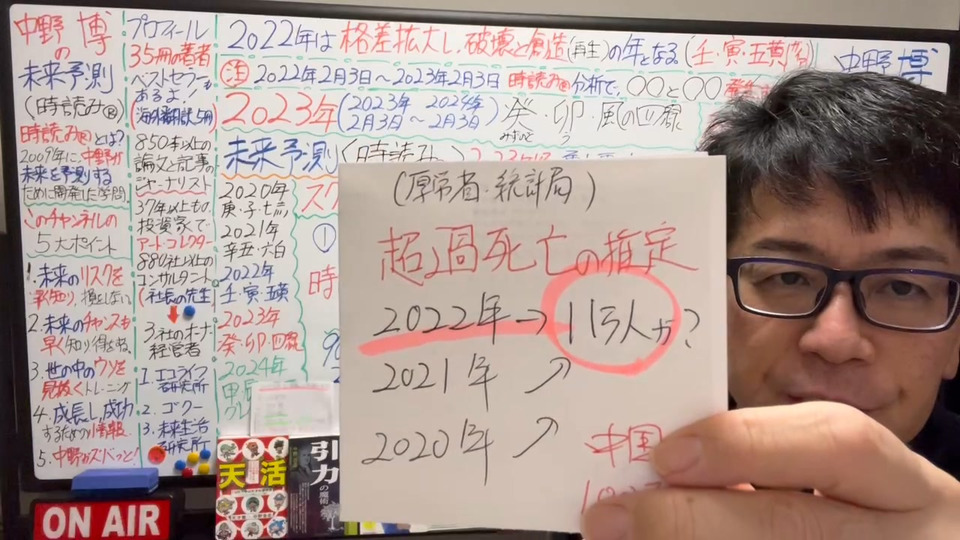 中野 博
の
未来予測
(時読み®)
時読み®とは?
2009年に、中野が
未来を予測する
ために開発した学問
このチャンネルの
5大ポイント
1.未来のリスクを
2.未来のチャンスも
早く知り得をする
3.世の中のウソを
見抜くトレーニング
4.成長し、成功
するための情報
5.中野がズバッと!
プロフィール
35冊の著者
ベストセラーも
あるよ!
(海外翻訳5冊)
850本以上の
論文と記事の
ジャーナリスト
37年以上もの
投資家で
アートコレクター
880社以上の
コンサルタント
(社長の先生)
3社のオーナー
経営者
1.エコライフ
研究所
2.ゴクー
3.未来生活
研究所
2022年は 格差拡大し、破壊と創造(再生)の年となる(壬・寅・五黄
注 2022年2月3日~2023年2月3日 時読み®分析で、〇〇と〇〇
2023年(2023年 2月3日 2024年 ~2月3日) 癸・卯・風の四緑
みずのと う
未来予測
2020年
庚・子・七赤
2021年
辛・丑・六白
2022年
壬・寅・五黄
2023年
癸・卯・四緑
2024年
中野 博
(厚労省・統計局)
超過死亡の指定
2022年→11万人か?
2021年↗
2020年↗
中国
天活
引力
の魔術
ON AIR